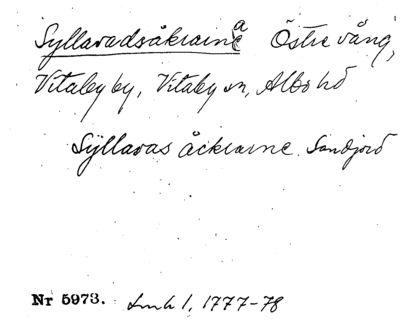 Syllavadsåkraina Östre vång,
Vitaby by, Vitaby sn, Albo hd
Sÿllavas åckrarne. Sandjord
Nr 5973. Lmh 1, 1777-78